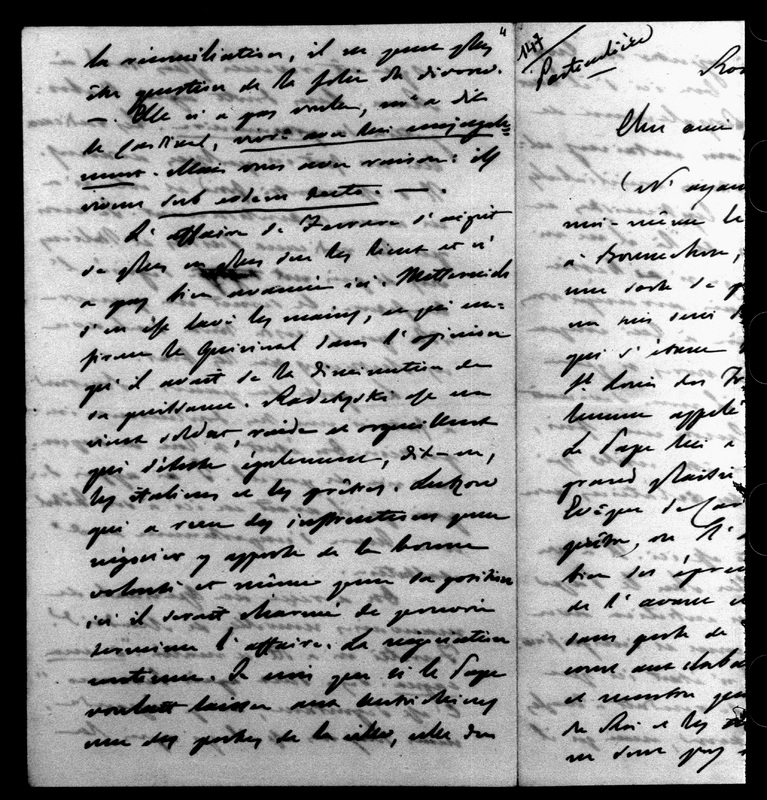 4
la réconciliation, il ne peut plus
être question de la folie du divorce.
—. Elle n'a pas voulu, m'a dit
le Cardinal, vivre avec lui conjugale=
ment. Mais vous avez raison: ils
vivent sub eodem tecto. —.
L'affaire de Ferrare s'aigrit
de plus en plus sur les lieux et n'
a pas bien avancé ici. Metternich
s'en est lavé les mains, ce qui con=
firme le Quirinal dans l'opinion
qu'il avait de la diminution de
sa puissance. Radetzski est un
vieux soldat, raide et orgueilleux
qui déteste également, dit-on,
les italiens et les prêtres. Lutzow
qui a reçu des instructions pour
négocier y apporte de la bonne
volonté et même pour sa position
ici il serait charmé de pouvoir
terminer l'affaire. La négociation
continue. Je crois que si le Pape
voulait laisser aux Autrichiens
une des portes de la ville, celle du
147
Particulière
Cher ami,
(N'ayan
moi-même le
à Bonnechose,
une sorte de
qui s'étonne
St Louis des Fr
homme appelé
Le Pape lui a
grand plaisir
Evêque de Car
prêtre, ou
bien des
de l'avance
sans perte de
et montre que
du Roi et les
ne sont pas